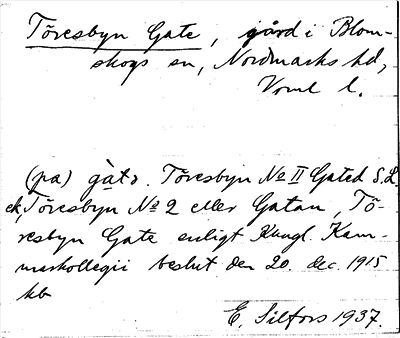 Töresbyn Gate, gård i Blom-
skogs sn, Nordmarks hd,
Vrml l.
(pa) gàtɘ. Töresbyn No II Gated S.L.
ek, Töresbyn No 2 eller Gatan, Tö-
resbyn Gate enligt Kungl. Kam-
markollegii beslut den 20. dec. 1915
kb
E. Silfors 1937.